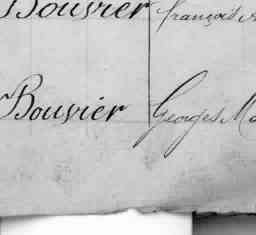 Bouvier François
Bouvier Georges